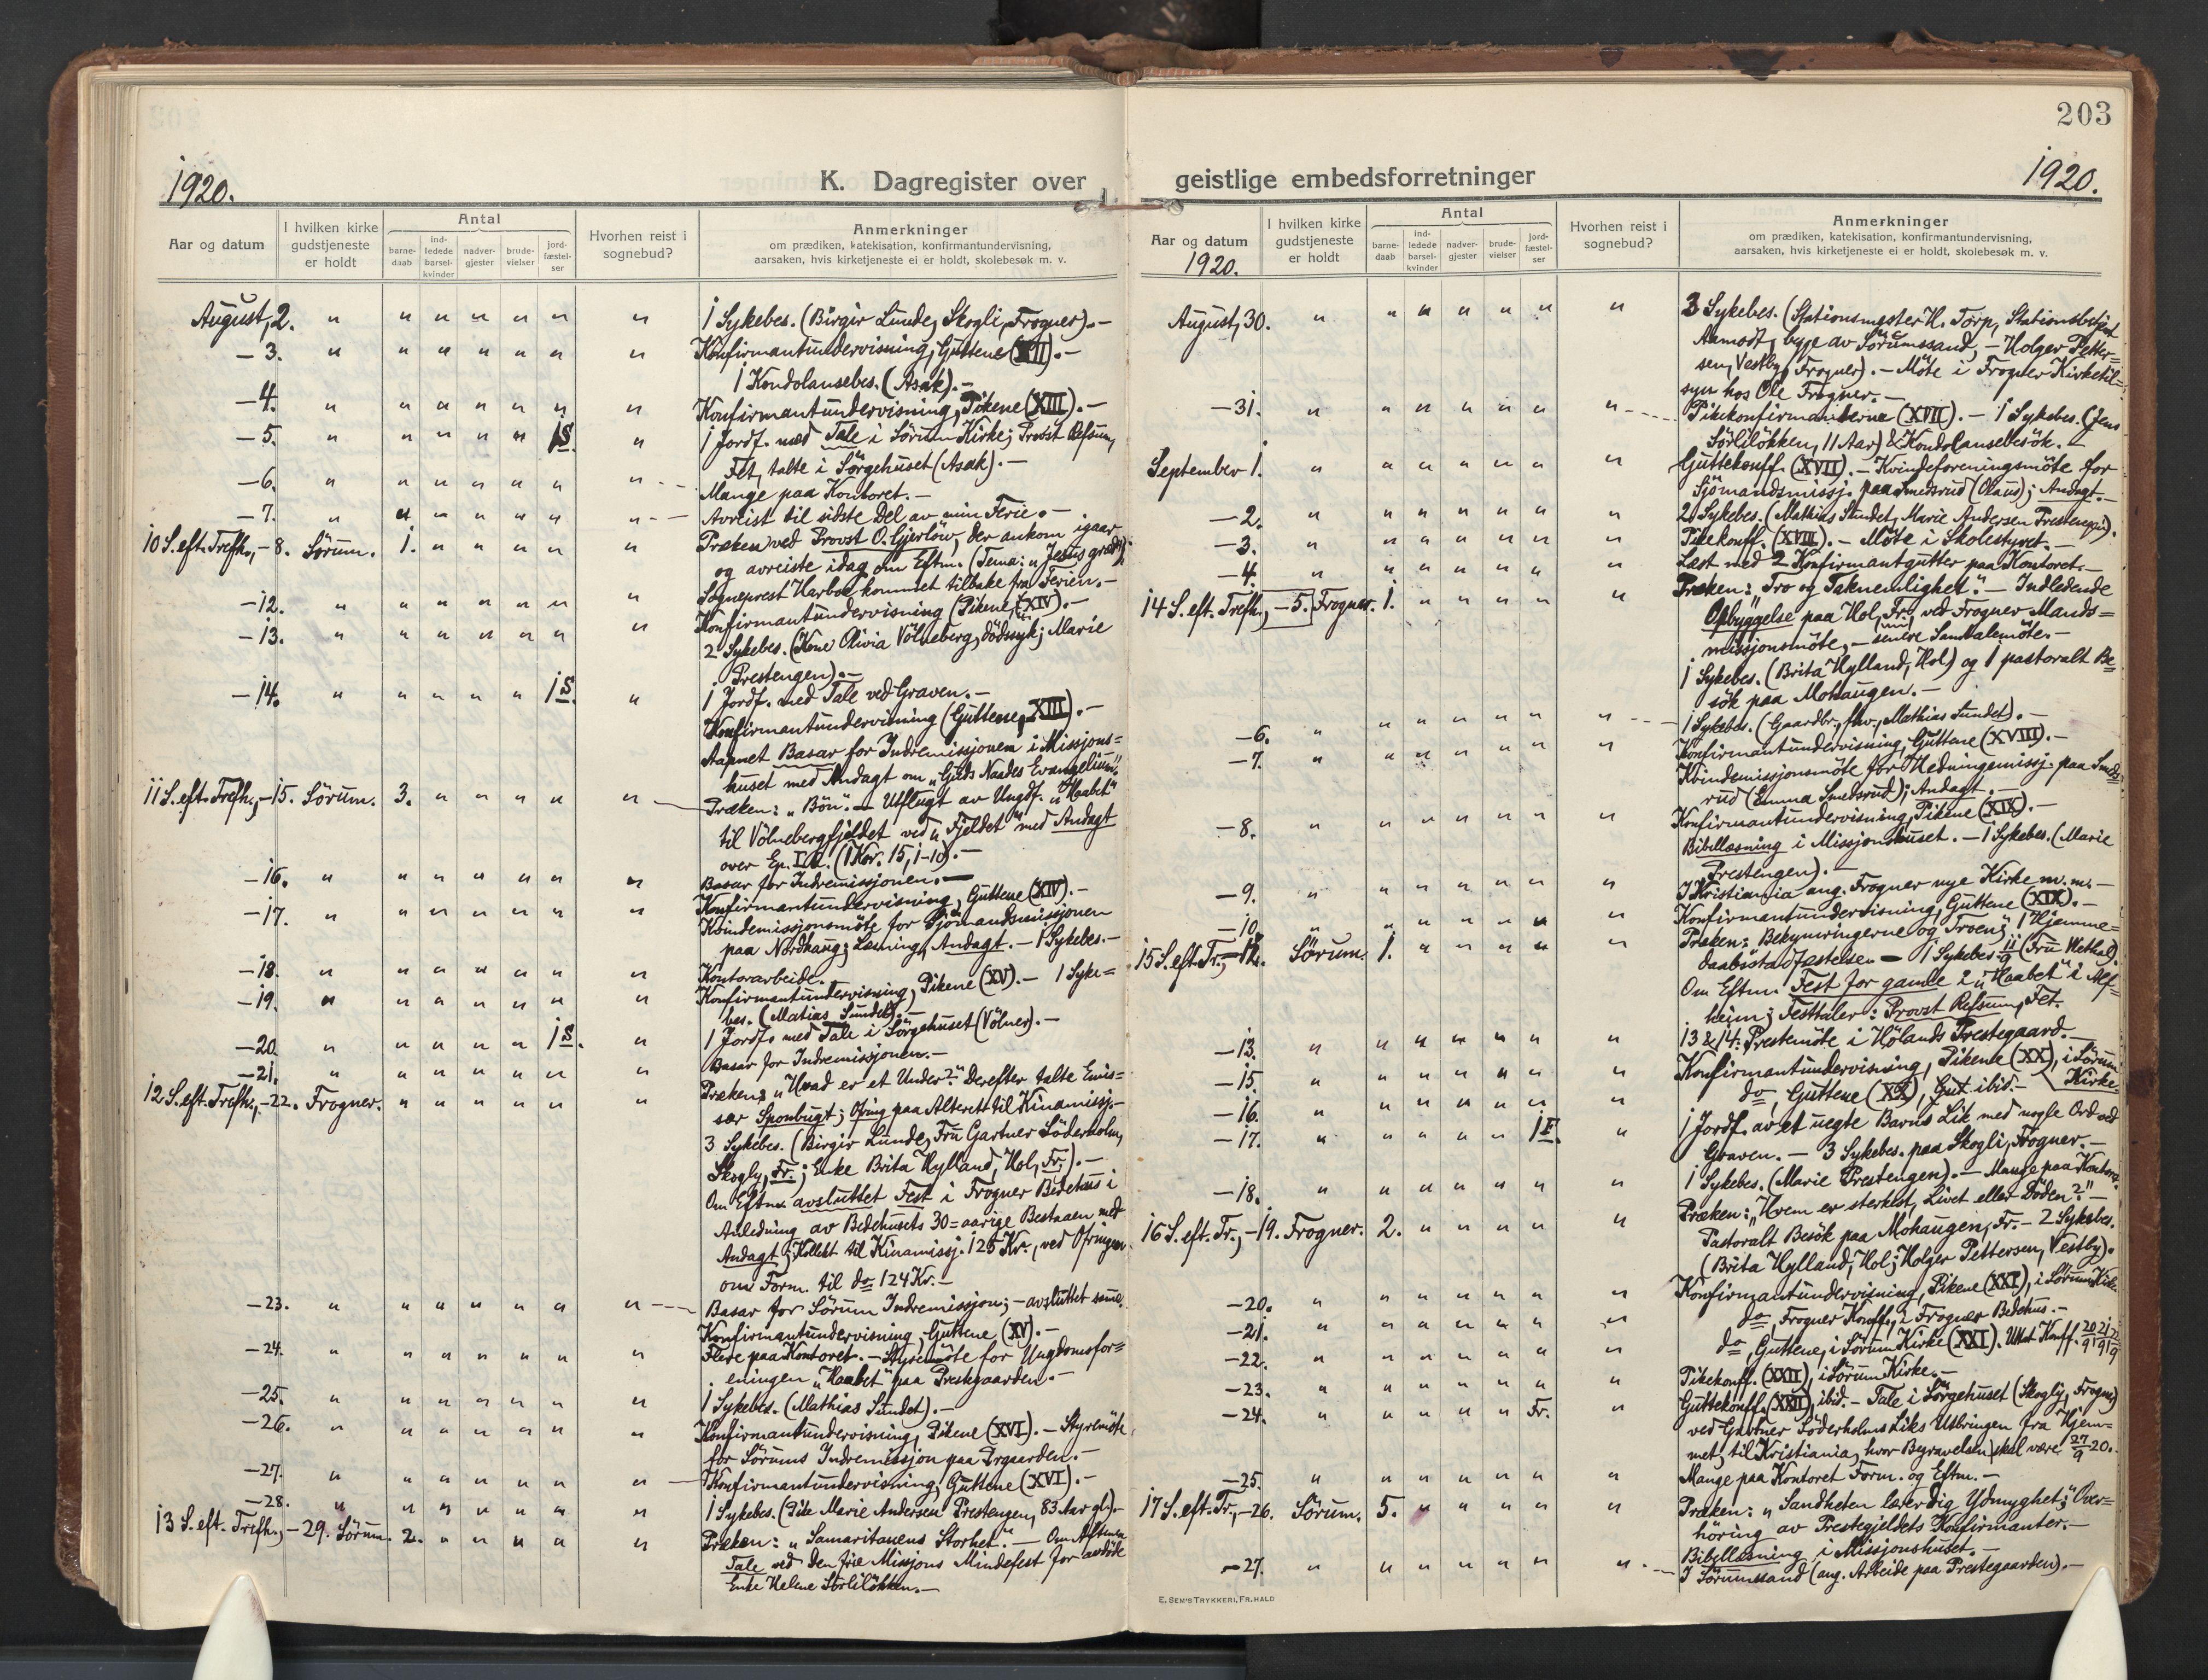 203
1920.
K. Dagregister over
geistlige embedsforretninger
1920.
Aar og datum
I hvilken kirke gudstjeneste er holdt
Antal
barne-daab
ind-ledede barsel-kvinder
nadver-gjester
brude-vielser
jord-fæstel-ser
Hvorhen reist i sognebud?
Anmerkninger
om prædiken, katekisation, konfirmantundervisning,
aarsaken, hvis kirketjeneste ei er holdt, skolebesøk m. v.
August, 2. " " " " " " " 1 Sykebes. (Birgir Lunde, Skogli, Frogner). –
– 3. " " " " " " " Konfirmantundervisning, Guttene (XII). –
1 Kondolansebes. (Asak). –
– 4. " " " " " " " Konfirmantundervisning, Pikene (XIII). –
– 5. " " " " " 1 S. " 1 Jordf. med Tale i Sörum Kirke; Provst Refsum,
Fet, talte i Sörgehuset (Asak). –
– 6. " " " " " " " Mange paa Kontoret. –
– 7. " " " " " " " Avreist til sidste Del av min Ferie. –
10 S. eft. Trefh., – 8. Sörum. 1. " " " " " Præken ved Provst O. Gjerlöw, der ankom igaar
og avreiste idag om Eftm. (Tema: „Jesus græd").
Sogneprest Harboe kommet tilbake fra Ferien. –
– 12. " " " " " " " Konfirmantundervisning (Pikene, XIV). –
– 13. " " " " " " " 2 Sykebes. (Kone Olivia Völneberg, dödssyk; Marie
Prestengen). –
– 14. " " " " " 1 S. " 1 Jordf. med Tale ved Graven. –
Konfirmantundervisning (Guttene, XIII). –
Aapnet Basar for Indremissjonen i Missjons=
huset med Andagt om „Guds Naades Evangelium".
11 S. eft. Trefh., – 15. Sörum. 3. " " " " " Præken: „Bön". – Utflugt av Ungdf. „Haabet"
til Völnebergfjeldet ved „Fjeldet" med Andagt
over Ep. I R. (1 Kor. 15, 1–10). –
– 16. " " " " " " " Basar for Indremissjonen. –
– 17. " " " " " " " Konfirmantundervisning, Guttene (XIV). –
Kvindemissjonsmöte for Sjömandsmissjonen
paa Nordhaug; Læsning, Andagt. – 1 Sykebes. –
– 18. " " " " " " " Kontorarbeide.
– 19. " " " " " " " Konfirmantundervisning, Pikene (XV). – 1 Syke=
bes. (Matias Sundet). –
– 20. " " " " " 1 S. " 1 Jordf. med Tale i Sörgehuset (Völner). –
– 21. " " " " " " " Basar for Indremissjonen. –
12 S. eft. Trefh., – 22. Frogner. " " " " " " Præken; „Hvad er et Under?" Derefter talte Emis=
sær Sponbugt; Ofring paa Alteret til Kinamissj. –
3 Sykebes. (Birgir Lunde, Fru Gartner Söderholm,
Skogly, Fr.; Enke Brita Hylland, Hol, Fr.). –
Om Eftm. avsluttet Fest i Frogner Bedehus i
Anledning av Bedehusets 30=aarige Bestaaen med
Andagt; Kollekt til Kinamissj. 125 Kr., ved Ofringen
om Form. til do 124 Kr. –
– 23. " " " " " " " Basar for Sörum Indremissjon; – avsluttet samme.
Konfirmantundervisning, Guttene (XV). –
– 24. " " " " " " " Flere paa Kontoret. – Styremöte for Ungdomsfor=
eningen „Haabet" paa Prestegaarden. –
– 25. " " " " " " " 1 Sykebes. (Mathias Sundet). –
– 26. " " " " " " " Konfirmantundervisning, Pikene (XVI). – Styremöte
for Sörums Indremissjon paa Prgaarden. –
– 27. " " " " " " " Konfirmantundervisning, Guttene (XVI). –
– 28. " " " " " " " 1 Sykebes. (Pike Marie Andersen Prestengen, 83 Aar gl.). –
13 S. eft. Trefh., – 29. Sörum. 2. " " " " " Præken: „Samaritanens Storhet". – Om Aftenen
Tale ved den frie Missjons Mindefest for avdöde
Enke Helene Sörlilökken. –
Aar og datum
1920.
I hvilken kirke gudstjeneste er holdt
Antal
barne-daab
ind-ledede barsel-kvinder
nadver-gjester
brude-vielser
jord-fæstel-ser
Hvorhen reist i sognebud?
Anmerkninger
om prædiken, katekisation, konfirmantundervisning,
aarsaken, hvis kirketjeneste ei er holdt, skolebesøk m. v.
August, 30. " " " " " " " 3 Sykebes. (Stationsmester H. Torp, Stationsbetjent
Aamodt, begge av Sörumssand, – Holger Petter=
sen, Vestby, Frogner). – Möte i Frogner Kirketil=
syn hos Ole Frogner. –
– 31. " " " " " " " Pikekonfirmanterne (XVII). – 1 Sykebes. (Jens
Sörlilökken, 11 Aar) & Kondolansebesök. –
September 1. " " " " " " " Guttekonff. (XVII). – Kvindeforeningsmöte for
Sjömandsmissj. paa Smedsrud (Olaus); Andagt. –
– 2. " " " " " " " 2 Sykebes. (Mathias Sundet, Marie Andersen Prestengen).
– 3. " " " " " " " Pikekonff. (XVIII). – Möte i Skolestyret. –
– 4. " " " " " " " Læst med 2 Konfirmantgutter paa Kontoret. –
14 S. eft. Trefh., – 5. Frogner. 1. " " " " " Præken: „Tro og Taknemlighet". – Indledende
Opbyggelse paa Hol, Fr., ved Frogner Mands=
missjonsmöte, – senere Samtalemöte. –
1 Sykebes. (Brita Hylland, Hol) og 1 pastoralt Be=
sök paa Mohaugen. –
– 6. " " " " " " " 1 Sykebes. (Gaardbr., fhv., Mathias Sundet). –
– 7. " " " " " " " Konfirmantundervisning, Guttene (XVIII). –
Kvindemissjonsmöte for Hedningemissj. paa Smeds=
rud (Emma Smedsrud); Andagt. –
– 8. " " " " " " " Konfirmantundervisning, Pikene (XIX). –
Bibellæsning i Missjonshuset. – 1 Sykebes. (Marie
Prestengen). –
– 9. " " " " " " " I Kristiania ang. Frogner nye Kirke m. m. –
– 10. " " " " " " " Konfirmantundervisning, Guttene (XIX). –
15 S. eft. Tr., – 12. Sörum. 1. " " " " " Præken: Bekymringerne og Troen; 1 Hjemme=
daabsstadfæstelse – 1 Sykebes. 11/9 (Fru Wethal).
Om Eftm. Fest for gamle i „Haabet" i Alf=
heim; Festtaler: Provst Refsum, Fet.
– 13. " " " " " " " 13 & 14: Prestemöte i Hölands Prestegaard. –
– 15. " " " " " " " Konfirmantundervisning, Pikene (XX), i Sörum
Kirke
– 16. " " " " " " " do, Guttene (XX), ibid. –
– 17. " " " " " 1 F. " 1 Jordf. av et uegte Barns Lik med nogle Ord ved
Graven. – 3 Sykebes. paa Skogli, Frogner. –
– 18. " " " " " " " 1 Sykebes. (Marie Prestengen). – Mange paa Kontoret.
16 S. eft. Tr., – 19. Frogner. 2. " " " " " Præken: „Hvem er sterkest, Livet eller Döden?" –
Pastoralt Besök paa Mohaugen, Fr. – 2 Sykebes.
(Brita Hylland, Hol; Holger Pettersen, Vestby).
– 20. " " " " " " " Konfirmantundervisning, Pikene (XXI), i Sörum Kirke
– 21. " " " " " " " do, Frogner Konff., i Frogner Bedehus. –
– 22. " " " " " " " do, Guttene, i Sörum Kirke (XXI). Konff. 20/9 21/9 22/9
– 23. " " " " " " " Pikekonff. (XXII), i Sörum Kirke. –
– 24. " " " " " Fr. " Guttekonff. (XXII), ibid. – Tale i Sörgehuset (Skogly, Frogner)
ved Gartner Söderholms Liks Utbringen fra Hjem=
met til Kristiania, hvor Begravelsen skal være 27/9 20. –
– 25. " " " " " " " Mange paa Kontoret Form. og Eftm. –
17 S. eft. Tr., – 26. Sörum. 5. " " " " " Præken: „Sandheten lærer dig Ydmyghet"; Over=
höring av Prestegjeldets Konfirmanter. –
Bibellæsning i Missjonshuset. –
– 27. " " " " " " " I Sörumssand (ang. Arbeide paa Prestegaarden). –
E. SEM'S TRYKKERI, FR. HALD